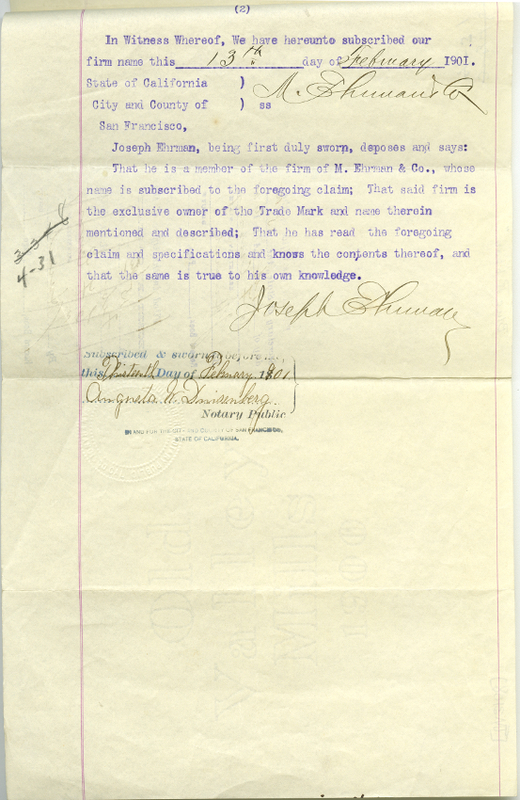 (2)
In Witness Whereof, We have hereunto subscribed our
firm name this 13th day of February 1901.
State of California ) M. Ehrman & Co
City and County of ) ss
San Francisco,
Joseph Ehrman, being first duly sworn, deposes and says:
That he is a member of the firm of M. Ehrman & Co., whose
name is subscribed to the foregoing claim; That said firm is
the exclusive owner of the Trade Mark and name therein
mentioned and described; That he has read the foregoing
claim and specifications and knows the contents thereof, and
that the same is true to his own knowledge.
4-31
Joseph Ehrman
Subscribed & sworn to before me,
this Thirteenth Day of February 1901
Notary Public
IN AND FOR THE CITY AND COUNTY OF SAN FRANCISCO,
STATE OF CALIFORNIA.